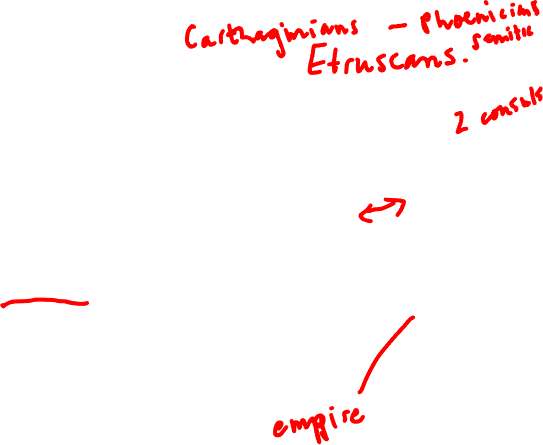 Carthaginians - Phoenicians
Semitic
Etruscans.
2 consuls
empire